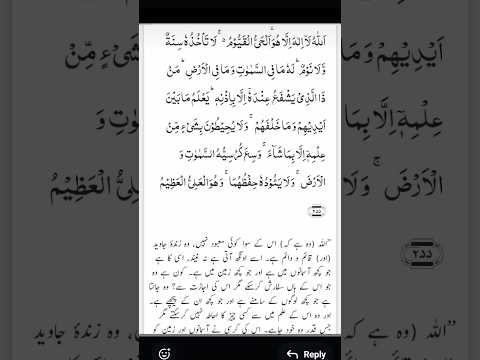 اَللّٰهُ لَاۤ اِلٰهَ اِلَّا هُوَۚ اَلْحَیُّ الْقَیُّوْمُ ۚ لَا تَاْخُذُهٗ سِنَةٌ
وَّلَا نَوْمٌ ؕ لَهٗ مَا فِی السَّمٰوٰتِ وَمَا فِی الْاَرْضِ ؕ مَنْ
ذَا الَّذِیْ یَشْفَعُ عِنْدَهٗۤ اِلَّا بِاِذْنِهٖ ؕ یَعْلَمُ مَا بَیْنَ
اَیْدِیْهِمْ وَمَا خَلْفَهُمْ ۚ وَلَا یُحِیْطُوْنَ بِشَیْءٍ مِّنْ
عِلْمِهٖۤ اِلَّا بِمَا شَآءَ ۚ وَسِعَ كُرْسِیُّهُ السَّمٰوٰتِ وَ
الْاَرْضَ ۚ وَلَا یَـُٔوْدُهٗ حِفْظُهُمَا ۚ وَهُوَ الْعَلِیُّ الْعَظِیْمُ
۲۵۵
"اللہ (وہ ہے کہ) اس کے سوا کوئی معبود نہیں، وہ زندۂ جاوید
(اور) قائم و دائم ہے۔ اسے اونگھ آتی ہے نہ نیند۔ اسی کا ہے
جو کچھ آسمانوں میں ہے اور جو کچھ زمین میں ہے۔ کون ہے وہ
جو اس کے ہاں سفارش کرسکے مگر اس کی اجازت سے؟ وہ جانتا
ہے جو کچھ لوگوں کے سامنے ہے اور جو کچھ ان کے پیچھے ہے۔
اور وہ اس کے علم میں سے کسی چیز کا احاطہ نہیں کرسکتے مگر
جس قدر وہ خود چاہے۔ اس کی کرسی نے آسمانوں اور زمین کو
Reply